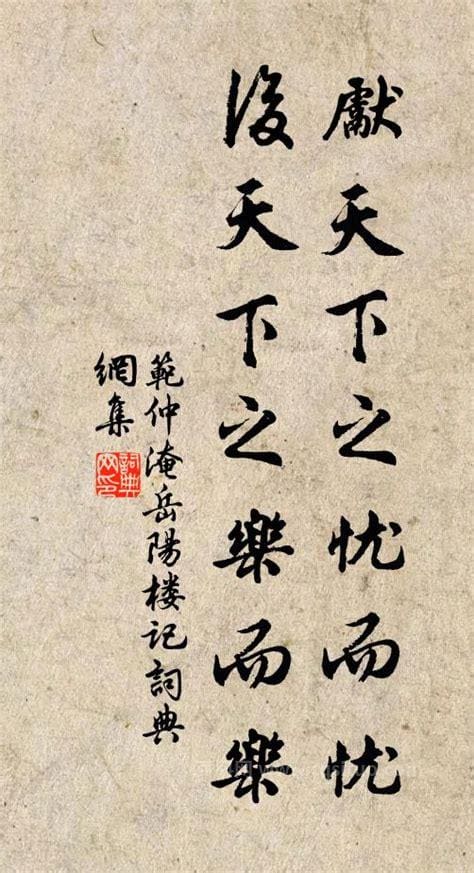 獻天下之忧而忧
後天下之樂而樂
範仲淹岳陽楼記詞典
網集
詞典
网印